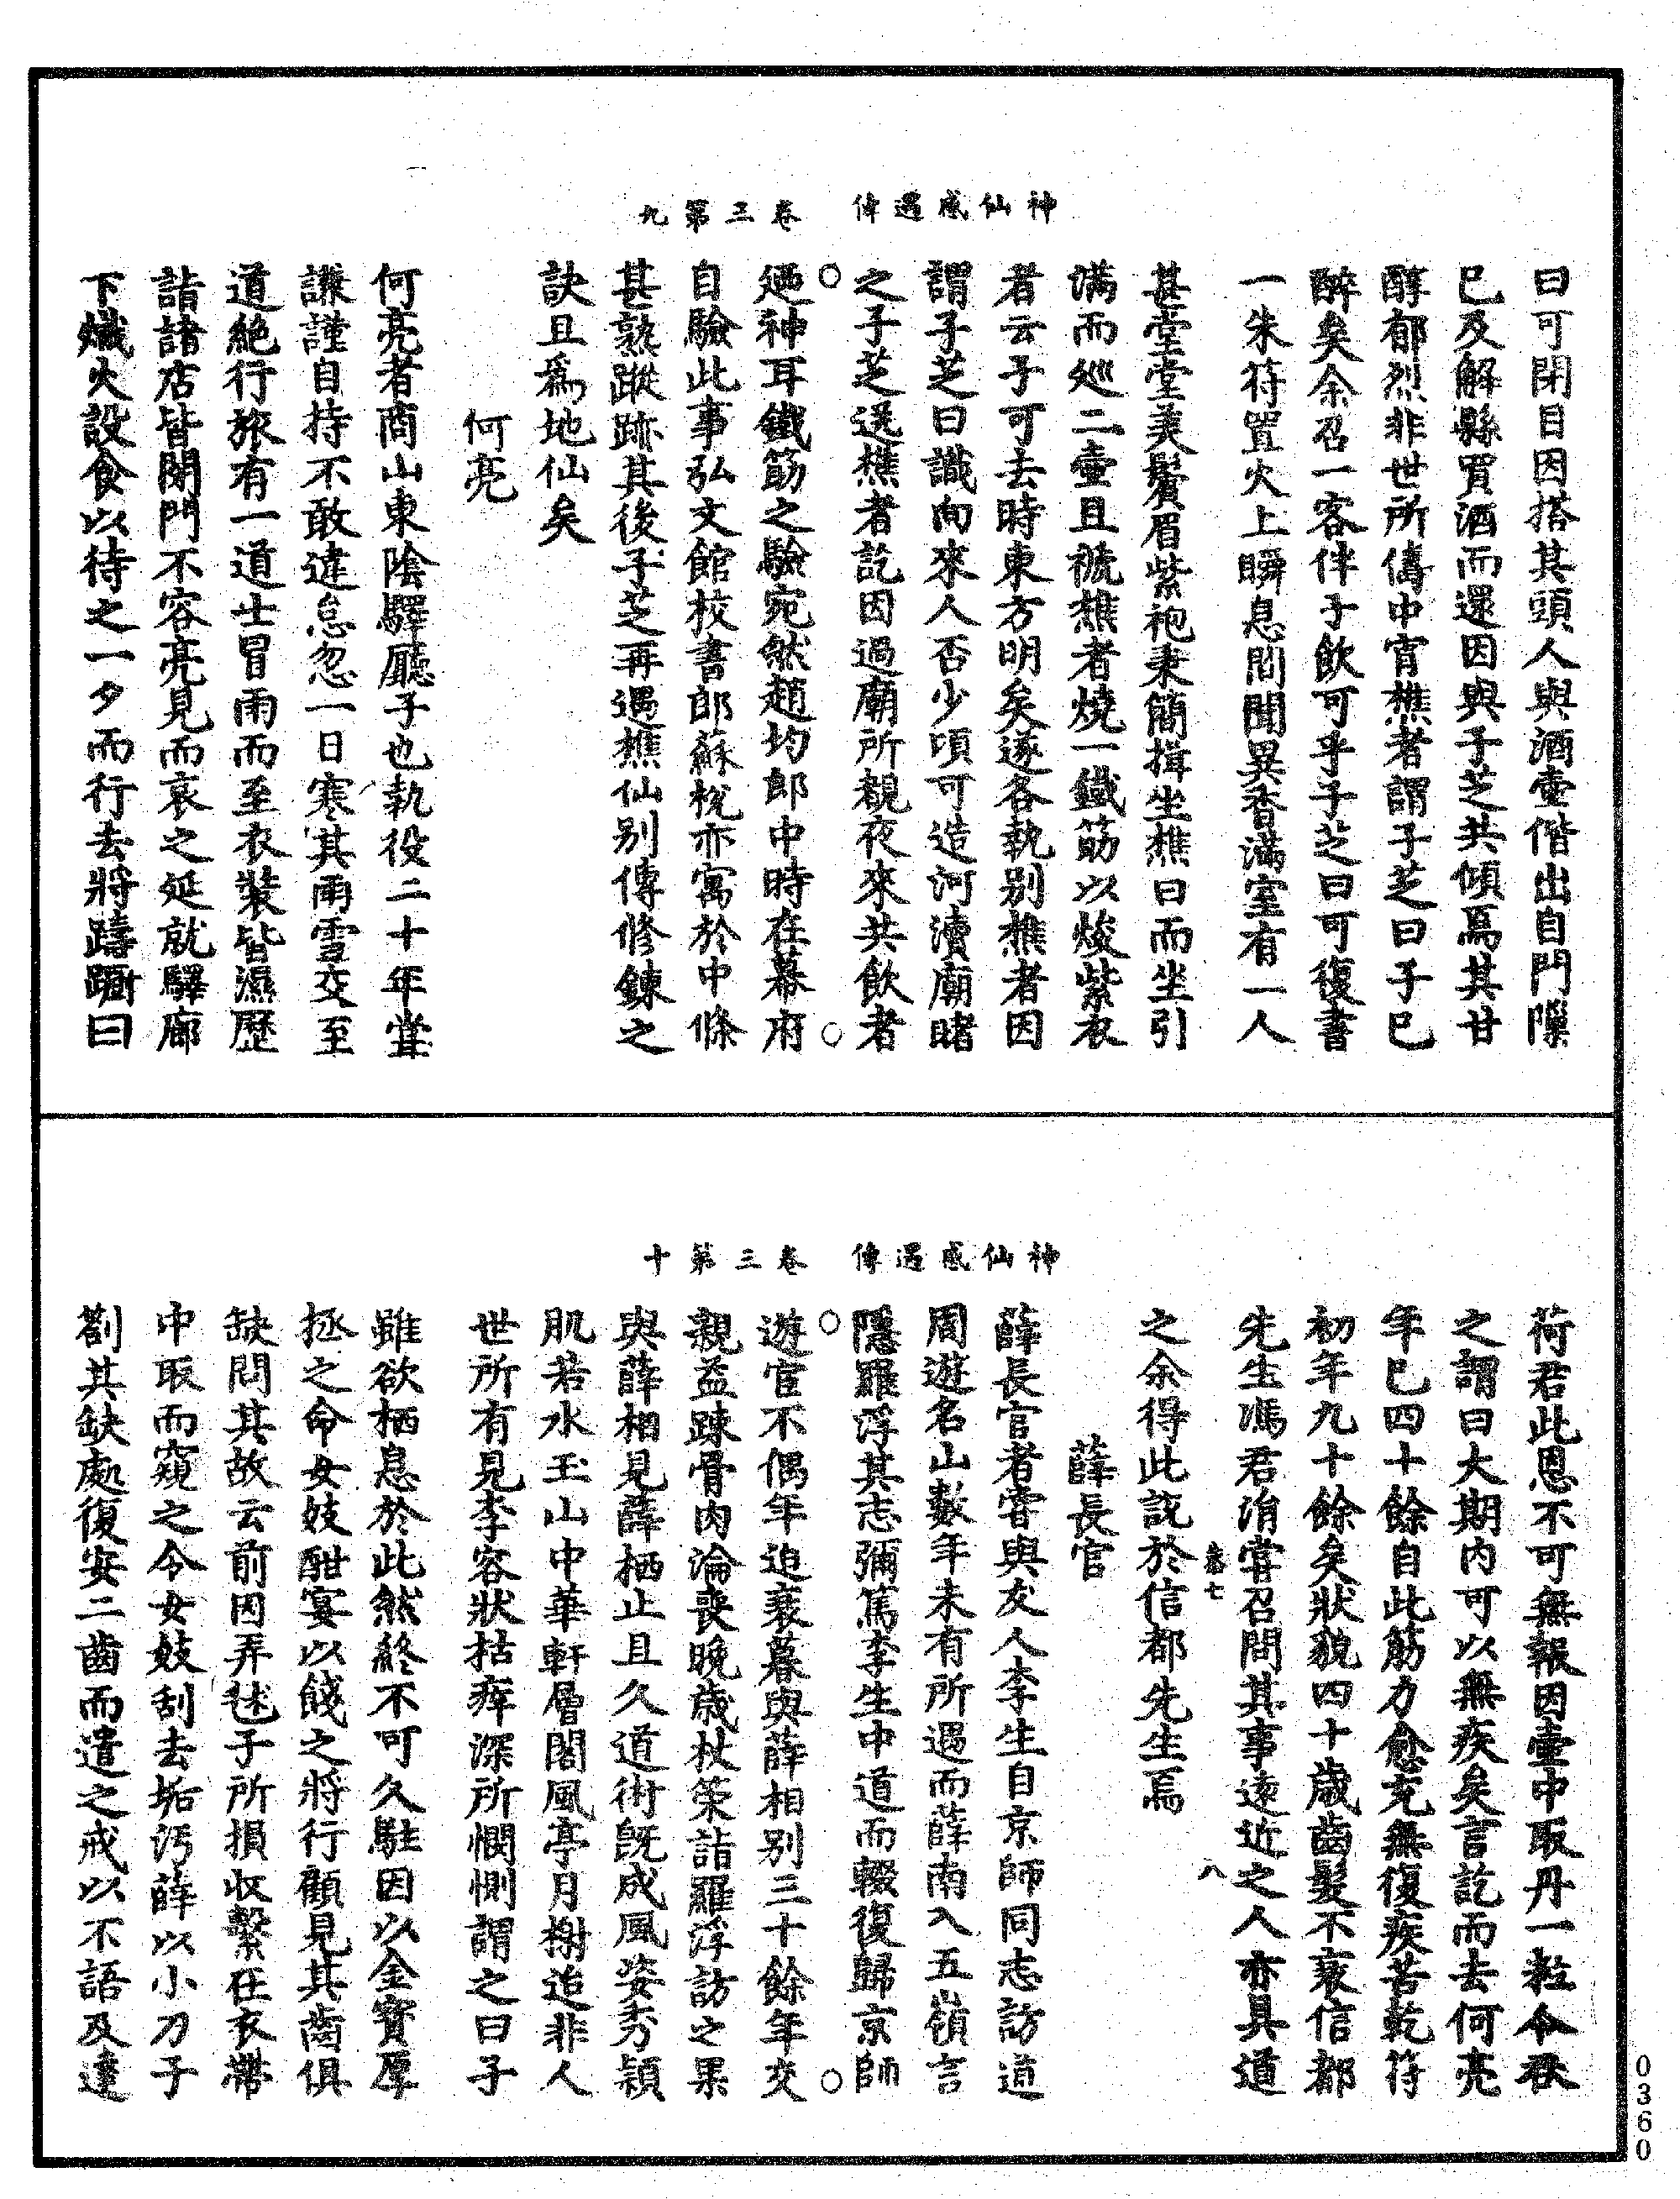 神仙感遇傳　卷三第九
曰可閉目因搭其頭人與酒壷偕出自門隟
已及解縣買酒而還因與子芝共傾焉其甘
醇郁烈非世所儔中宵樵者謂子芝曰子已
醉矣余召一客伴子飲可乎子芝曰可復書
一朱符置火上瞬息間聞異香滿室有一人
甚堂堂美鬢眉紫袍秉簡揖坐樵曰而坐引
滿而巡二壷且褫樵者燒一鐵筯以焌紫衣
者云子可去時東方明矣遂各執別樵者因
謂子芝曰識向來人否少頃可造河瀆廟睹
之子芝送樵者訖因過廟所覩夜來共飲者
廼神耳鐵筯之驗宛然趙均郎中時在幕府
自驗此事弘文館校書郎蘇梲亦寓於中條
甚熟蹤跡其後子芝再遇樵仙別傳修鍊之
訣且爲地仙矣
何亮
何亮者商山東陰驛廳子也執役二十年甞
謙謹自持不敢違怠忽一日寒甚雨雪交至
道絶行旅有一道士冒雨而至衣裝皆濕歷
詣諸店皆閉門不容亮見而哀之延就驛廊
下熾火設食以待之一夕而行去將躊躕曰
神仙感遇傳　卷三第十
荷君此恩不可無報因壷中取丹一粒令吞
之謂曰大期内可以無疾矣言訖而去何亮
年已四十餘自此筋力愈充無復疾苦乾符
初年九十餘矣狀貌四十歲齒髮不衰信都
先生馮君涓甞召問其事遠近之人亦具道
恭七　八
之余得此説於信都先生焉
薛長官
薛長官者甞與友人李生自京師同志訪道
周遊名山數年未有所遇而薛南入五嶺言
隱羅浮其志彌篤李生中道而輟復歸京師
遊宦不偶年迫衰暮與薛相別三十餘年交
親益踈骨肉淪喪晚歲杖策詣羅浮訪之果
與薛相見薛栖止且久道術旣成風姿秀頴
肌若水玉山中華軒層閣風亭月榭迨非人
世所有見李容狀枯瘁深所憫惻謂之曰子
雖欲栖息於此然終不可久駐因以金寳厚
拯之命女妓酣宴以餞之將行顧見其齒俱
缺問其故云前因弄毬子所損収繫在衣帶
中取而窺之令女妓刮去垢汚薛以小刀子
劄其缺處復安二齒而遣之戒以不語及達
0360